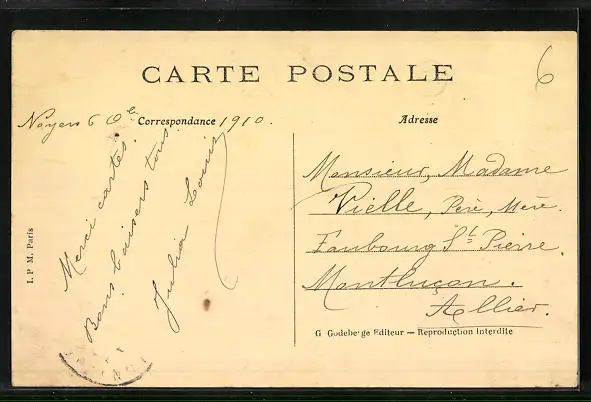 CARTE POSTALE
6
Noyers 6 Obre 1910.
Correspondance
Adresse
Merci cartes.
Bons baisers tous
Julia Louis
Monsieur, Madame
Vielle, Père, Mère.
Faubourg St Pierre.
Montluçon.
Allier.
I. P M. Paris
G Godeberge Editeur — Reproduction interdite